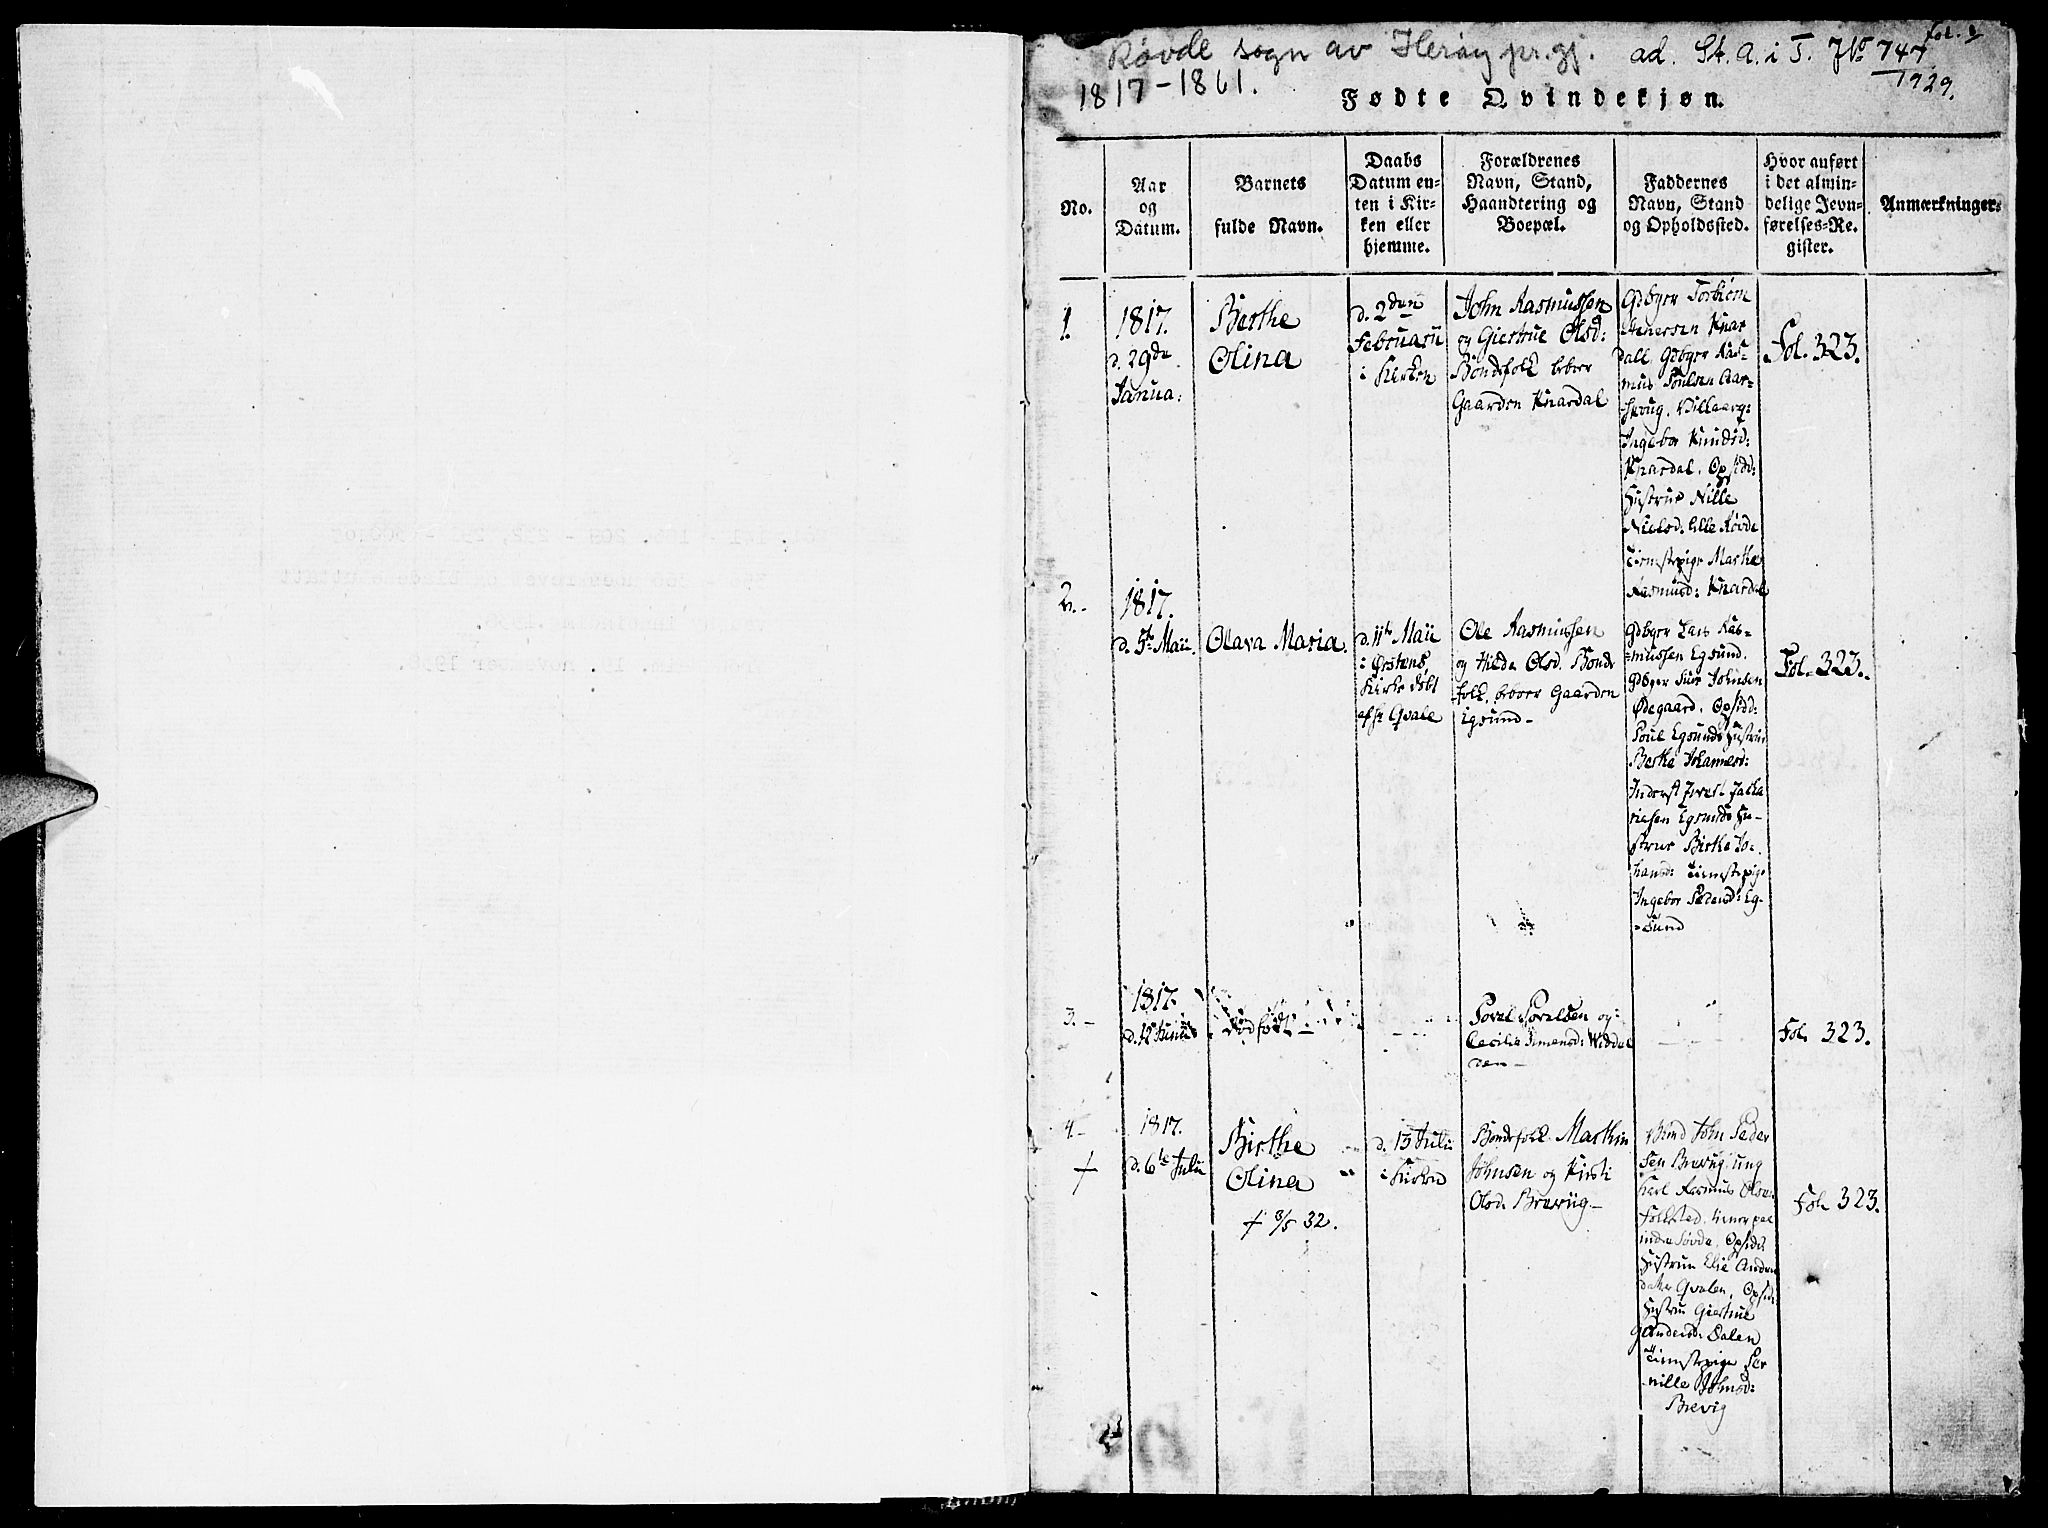 Røvde sogn av Herøy pr.gj. ad. St. A. i T. J№ 747
1929.
fol. 1
1817-1861.
Fødte Qvindekjøn.
No.
Aar
og
Datum.
Barnets
fulde Navn.
Daabs
Datum en-
ten i Kir-
ken eller
hjemme.
Forældrenes
Navn, Stand,
Haandtering og
Boepæl.
Faddernes
Navn, Stand
og Opholdssted.
Hvor anført
i det almin-
delige Jevn-
førelses-Re-
gister.
Anmærkninger.
1.
1817.
d. 29de
Janua:
Berthe
Olina
d. 2den
Februarii
i Kirken
John Rasmussen
og Giertrue Olsd:
Bondefolk beboer
Gaarden Knardal
Gdbger Torbiørn
Knar
dall Gdbger Ras-
mus Poulsen Aar-
Ingebor Knudsd:
Knardal. Opsidd:
Hustrue Nille
Nielsd. lille Røvde
Tienstepige Marthe
Rasmusd: Knardal
Fol. 323.
2.-
1817.
d. 5te Maii:
Olava Maria.
d. 11te Maii
i Ørstens
Kirke døbt
af Hr Qvale
Ole Rasmussen
og Hilda Olsd. Bonde
folk, beboer Gaarden
Egsund-
Gdbger Lars Ras-
mussen Egsund.
Gdbger Siur Johnsen
Ødegaard. Opsidd:
Poul Egsunds Hustrue
Berthe Johannesd:
Inderst
riasen Egsunds Hu-
strue Birthe Jo-
hansd: Tienstepige
Ingebor Pedersd: Eg-
sund
Fol. 323.
3.-
1817.
d. 12 Junii
dødfødt -
Povel Povelsen og
Cecilie Simensd:
Fol. 323.
4.-
+
1817.
d. 6te Julii
Birthe
Olina
+ 3/5 32.
d. 13 Julii
i Kirken
Bondefolk Marthin
Johnsen og Kirsti
Olsd. Brevig-
John Peder
sen Brevig. ung
Karl Rasmus Olsen
Folkestad. tiener paa
indre Søvde. Opsidd.
Hustrue Elie Anders
datter Qvalen. Opsidd:
Hustru Giertrue
Gundersd: Dalen
Tienstepige Per
nille Johnsd:
Brevig
Fol. 323.